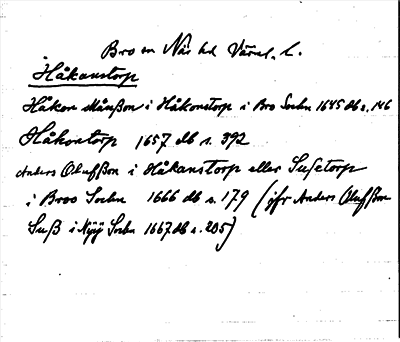 Bro sn När hd Värml. l.
Håkanstorp
Håkon Månßon i Håkonstorp i Bro Sochn 1645 db s. 146
Håkontorp 1657 db s. 392
Anders Olufßon i Håkanstorp eller Susetorp
i Broo Sochn 1666 db s. 179 (jfr Anders Olufßon
Suß i Ny Sochn 1667 db s. 205)